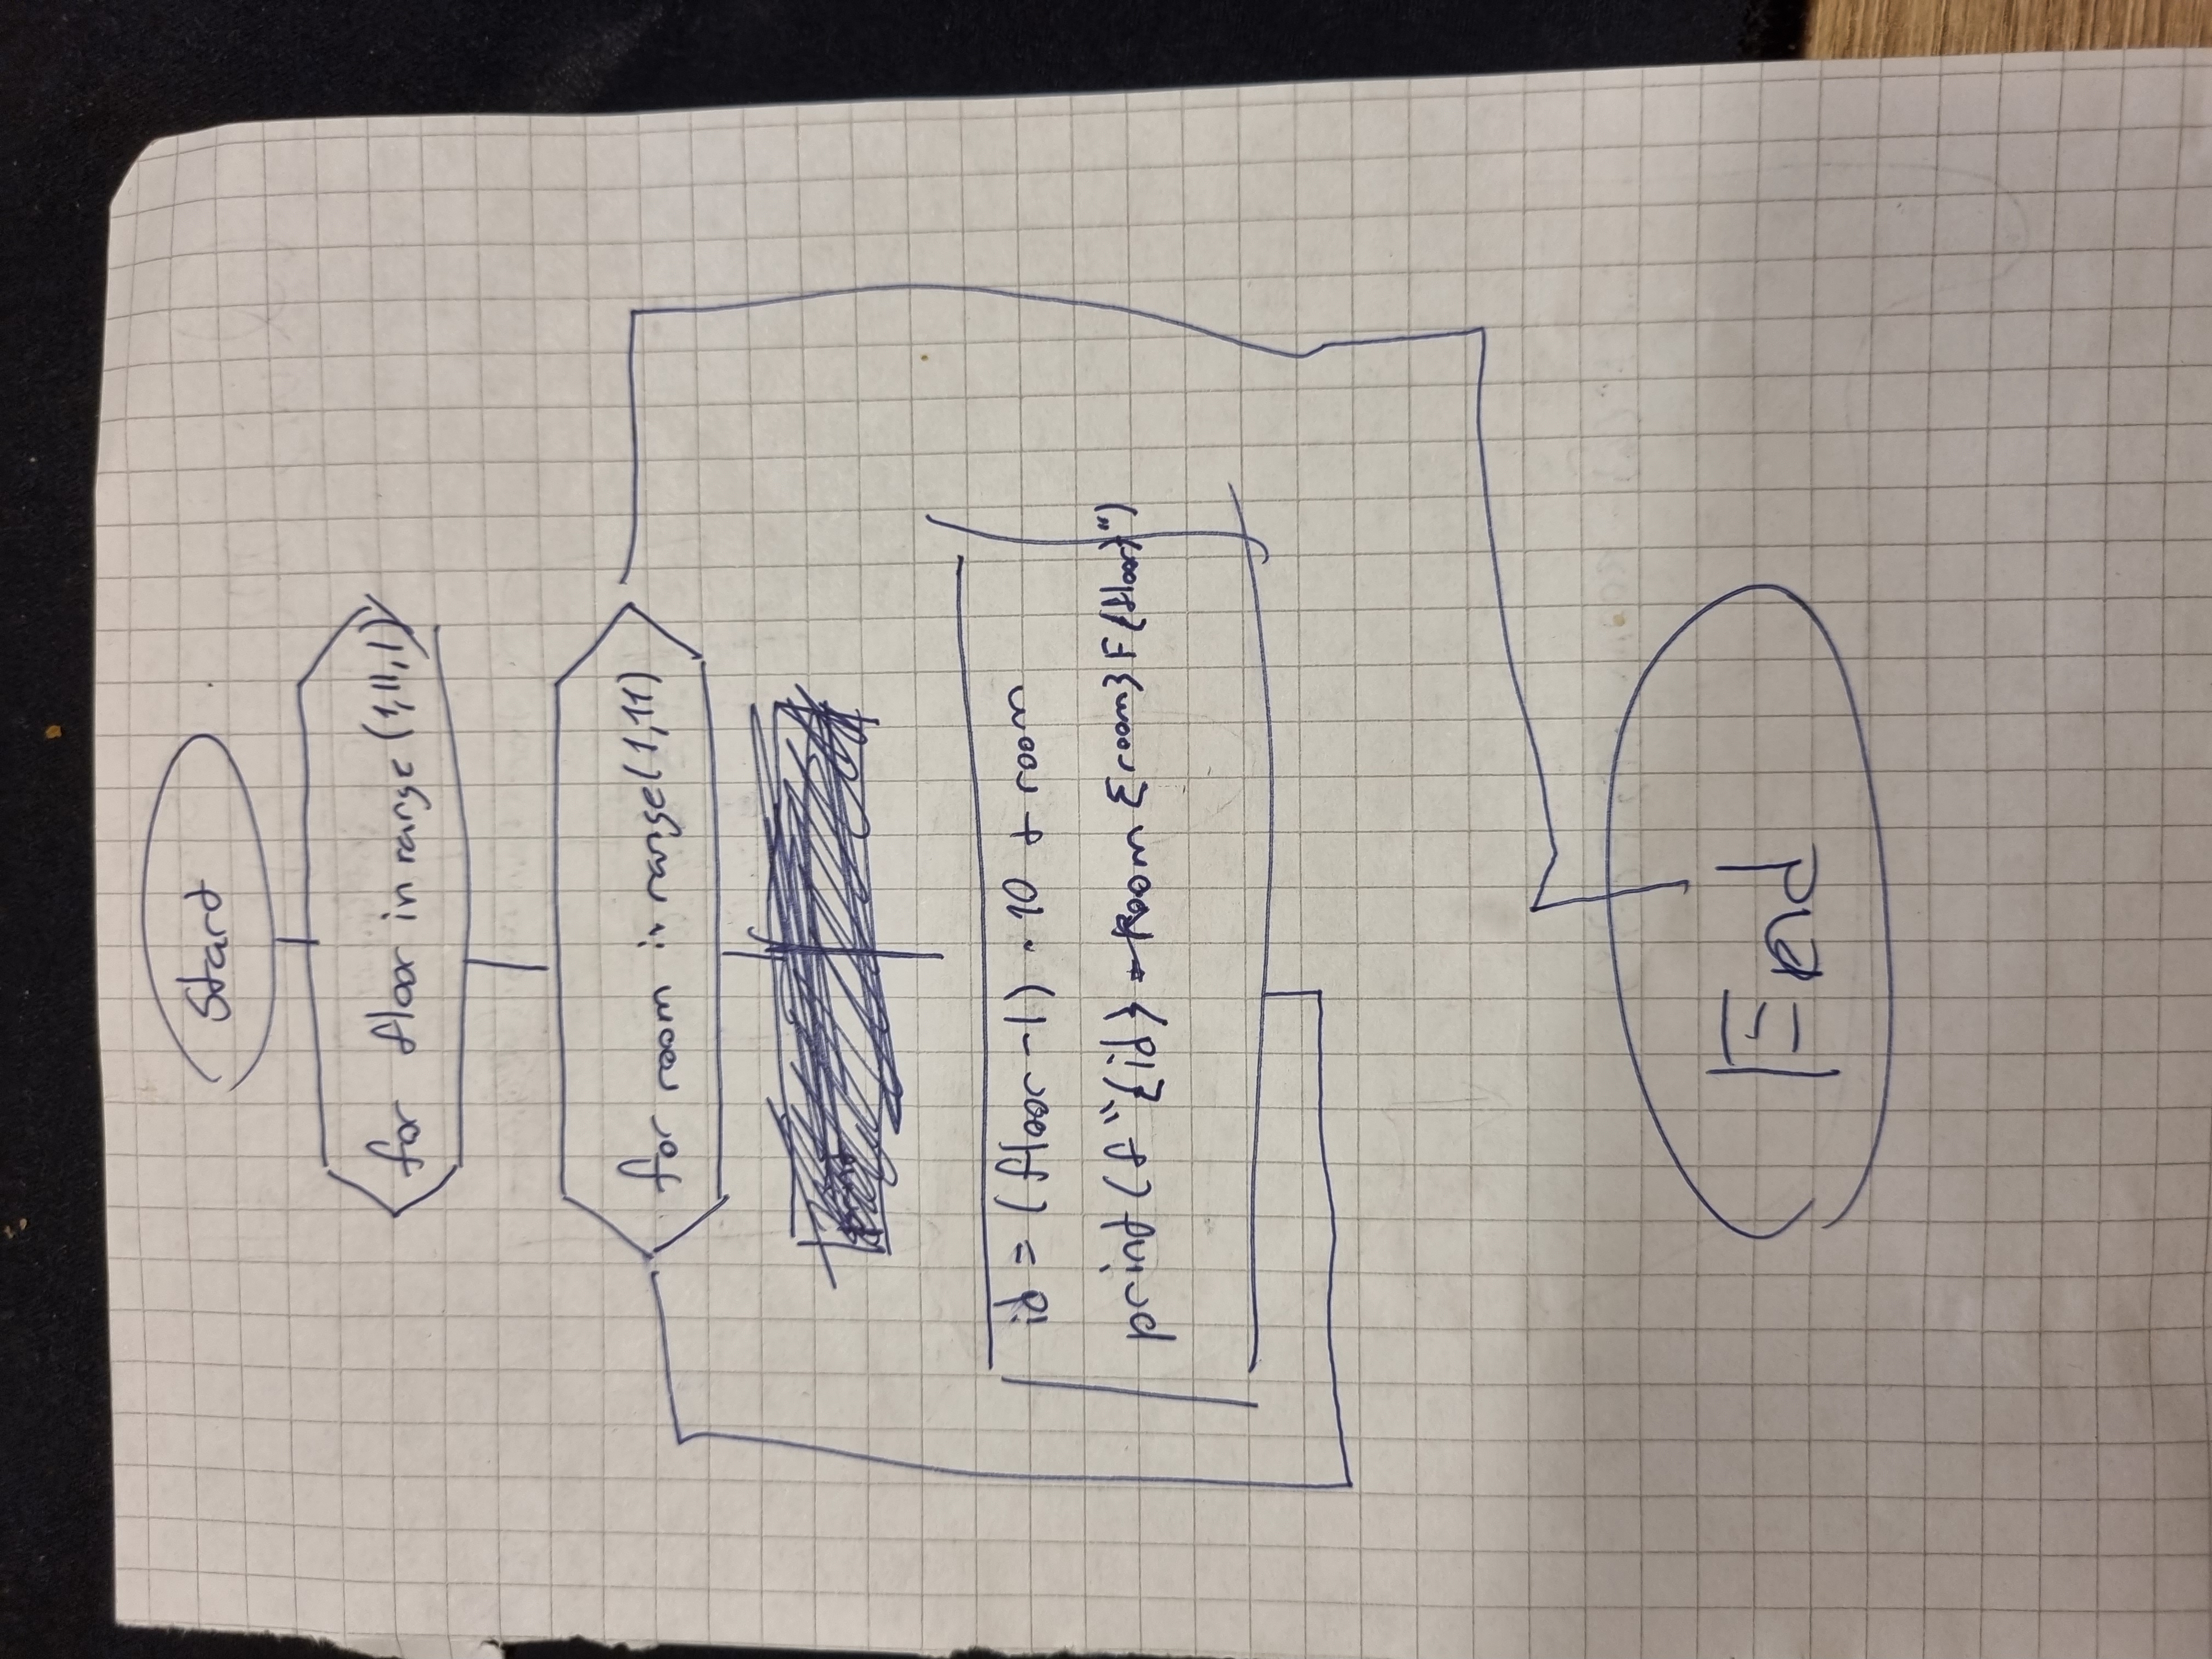 Start
for floor in range (1,11,1)
for room in range(1,11)
id = (floor-1) · 10 + room
print (f"{id} - Room {room} F{floor}")
End